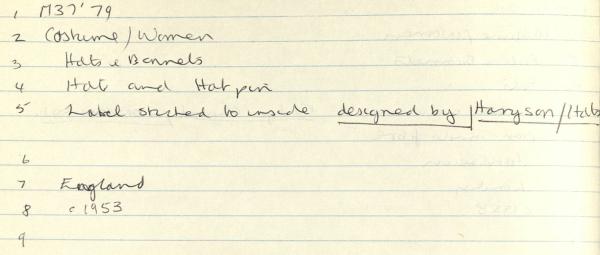 1 M37'79
2 Costume/Women
3 Hats & Bonnets
4 Hat and Hat pin
5 Label stitched to inside designed by Haryson/Hats
6
7 England
8 c1953
9